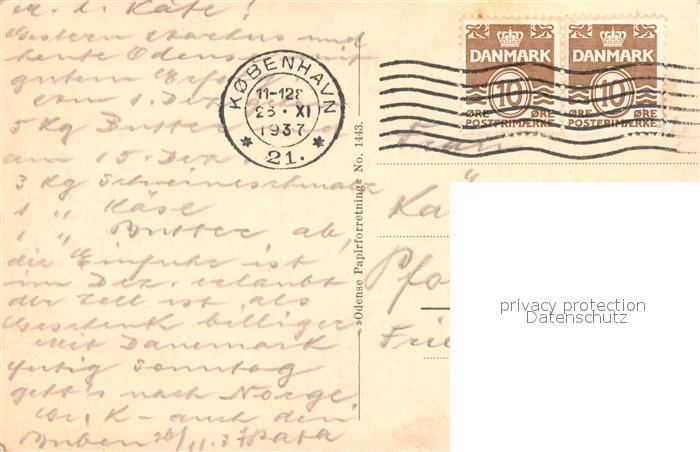 M. l. Käte!
Gestern Aarhus und
heute Odense mit
gutem Erfo
vom 1. Dez
5 Kg Butter
am 15. Dez
3 Kg Schweineschmalz
1 " Käse
1 " Butter ab,
die Einfuhr ist
im Dez. erlaubt
der Zoll ist als
Geschenk billiger
Mit Dänemark
fertig Sonntag
geht's nach Norge.
Gr. K - auch den
Buben 26/11.37 Papa
KØBENHAVN
11-12
26. XI
1937
* 21. *
DANMARK DANMARK
10 10
ØRE ØRE ØRE ØRE
POSTFRIMÆRKE POSTFRIMÆRKE
»Odense Papirforretninge No. 1443.
Frau
Kä
Pfo
Frie
privacy protection
Datenschutz